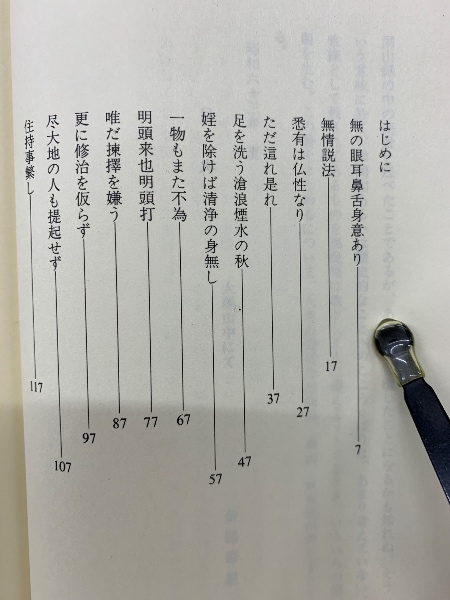 はじめに
無の眼耳鼻舌身意あり 7
無情説法 17
悉有は仏性なり 27
ただ這れ是れ 37
足を洗う滄浪煙水の秋 47
婬を除けば清浄の身無し 57
一物もまた不為 67
明頭来也明頭打 77
唯だ揀擇を嫌う 87
更に修治を仮らず 97
尽大地の人も提起せず 107
住持事繁し 117